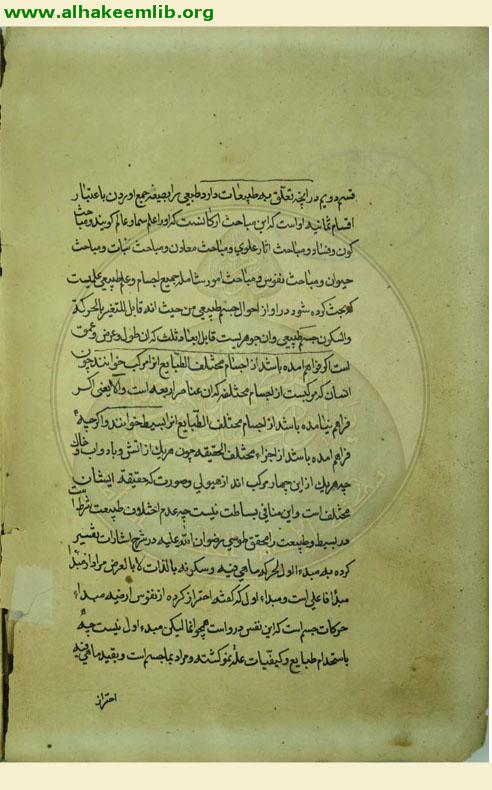 www.alhakeemlib.org
قسم دویم در انچه تعلق به طبیعات دارد طبیعی را بصیغه جمع اوردن باعتبار
اقسام ثمانیه اوست که این مباحث ارکانست که اورا علم سما و عالم کویند و مباحث
کون و فساد و مباحث اثار علوی و مباحث معادن و مباحث نبات و مباحث
حیوان و مباحث نفوس و مباحث امور شامله جمیع اجسام و علم طبیعی علمیست
که بحث کرده شود در او از احوال جسم طبیعی من حیث انه قابل للتغیر بالحرکة
والسکون جسم طبیعی وان جوهریست قابل ابعاد ثلث که ان طول و عرض و عمق
است اگر فراهم امده باشد از اجسام مختلف الطبایع انرا مرکب خوانند چون
انسان که مرکبست از اجسام مختلفه که ان عناصر اربعه است والا یعنی اکر
فراهم نیامده باشد از اجسام مختلف الطبایع انرا بسیط خوانند واکر چه
فراهم امده باشد از اجزاء مختلف الحقیقه چون هریک از اتش و باد و اب و خاک
چه هریک از این چهار مرکب اند از هیولی و صورت که حقیقة ایشان
مختلف است و این منافی بساطت نیست چه عدم اختلاف طبیعت شرطست
در بسیط و طبیعت را محقق طوسی رضوان الله علیه در شرح اشارات تفسیر
کرده به مبدء اول لحرکة ماهی فیه و سکونه بالذات لا بالعرض مراد از مبدا
مبدا فاعلی است و مبداء اول که کفته احتراز کرده از نفوس ارضیه مبداء
حرکات جسم است که این نفس در واست همچو انما لیکن مبدء اول نیست چه
باستخدام طبایع و کیفیات علة نمو کشته و مراد بما جسم است و بقید ماهی فیه
احتراز